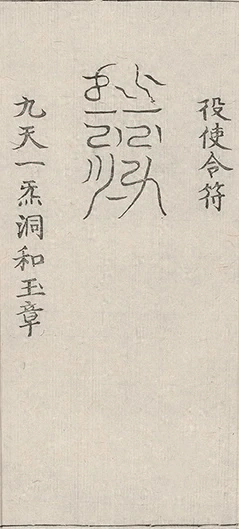 役使合符
九天一炁洞和玉章